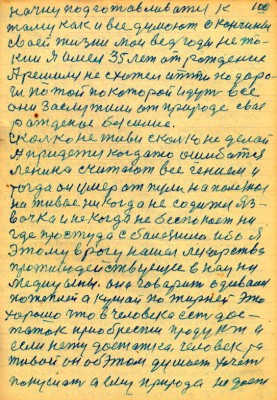 начну подготавливать к 100
тому как и все думают о кончины
своей жизни мои ведь годы не та-
кии Я имея 35 лет от рождение
Я решил не схотел итти по доро-
ги по той по которой идут все
они заслужили от природе свое
рождение бессилие.
Сколько не живи сколько не делай
а придется когда то ошибатся
Ленина считают все гением и
тогда он умер от пули на полезное
наживае никогда не сиди
и некогда не беспокоет ни
где простуда с болезнию ибо я
Этому врогу нашел лекарства
противодействующие в науки
Медицины. она говорит одевай
потеплей а кушай пожирней Это
хорошо что в человека есть дос-
таток приобрести продукты и
если нету достатка, человек та
живой он об этом думает хочет
покушат а ему природа не дает